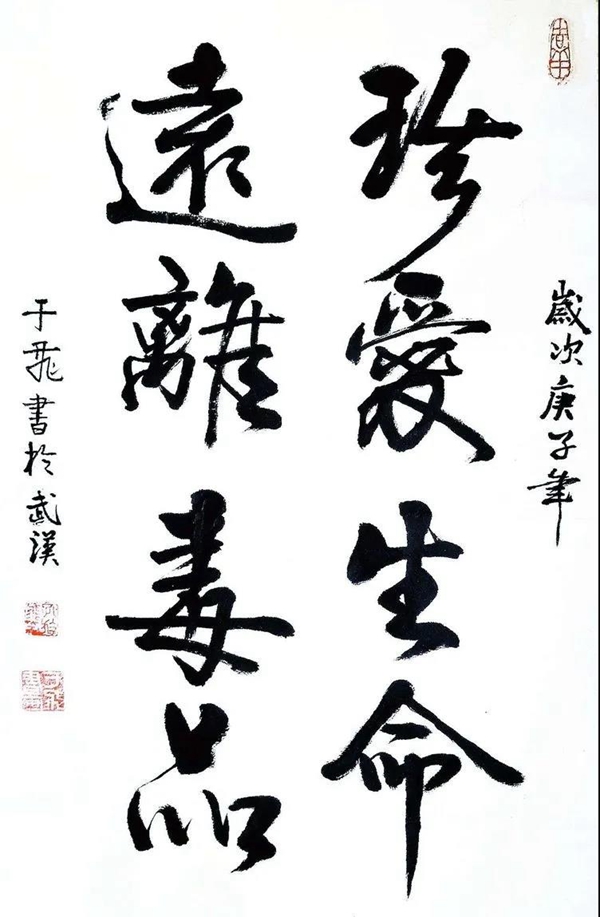 歲次庚子年
珍愛生命
遠離毒品
于飛書於武漢